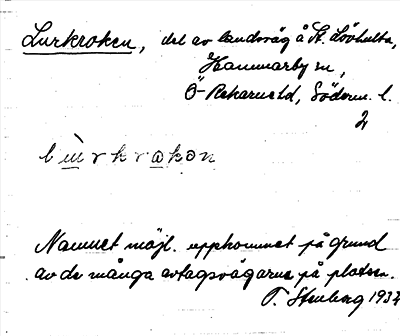 Lurkroken, del av landsväg å St. Lövhulta,
Hammarby sn,
Ö-Rekarne hd, Söderm. l.
2
Namnet möjl. uppkommet på grund
av de många avtagsvägarna på platsen.
T. Stenberg 1937